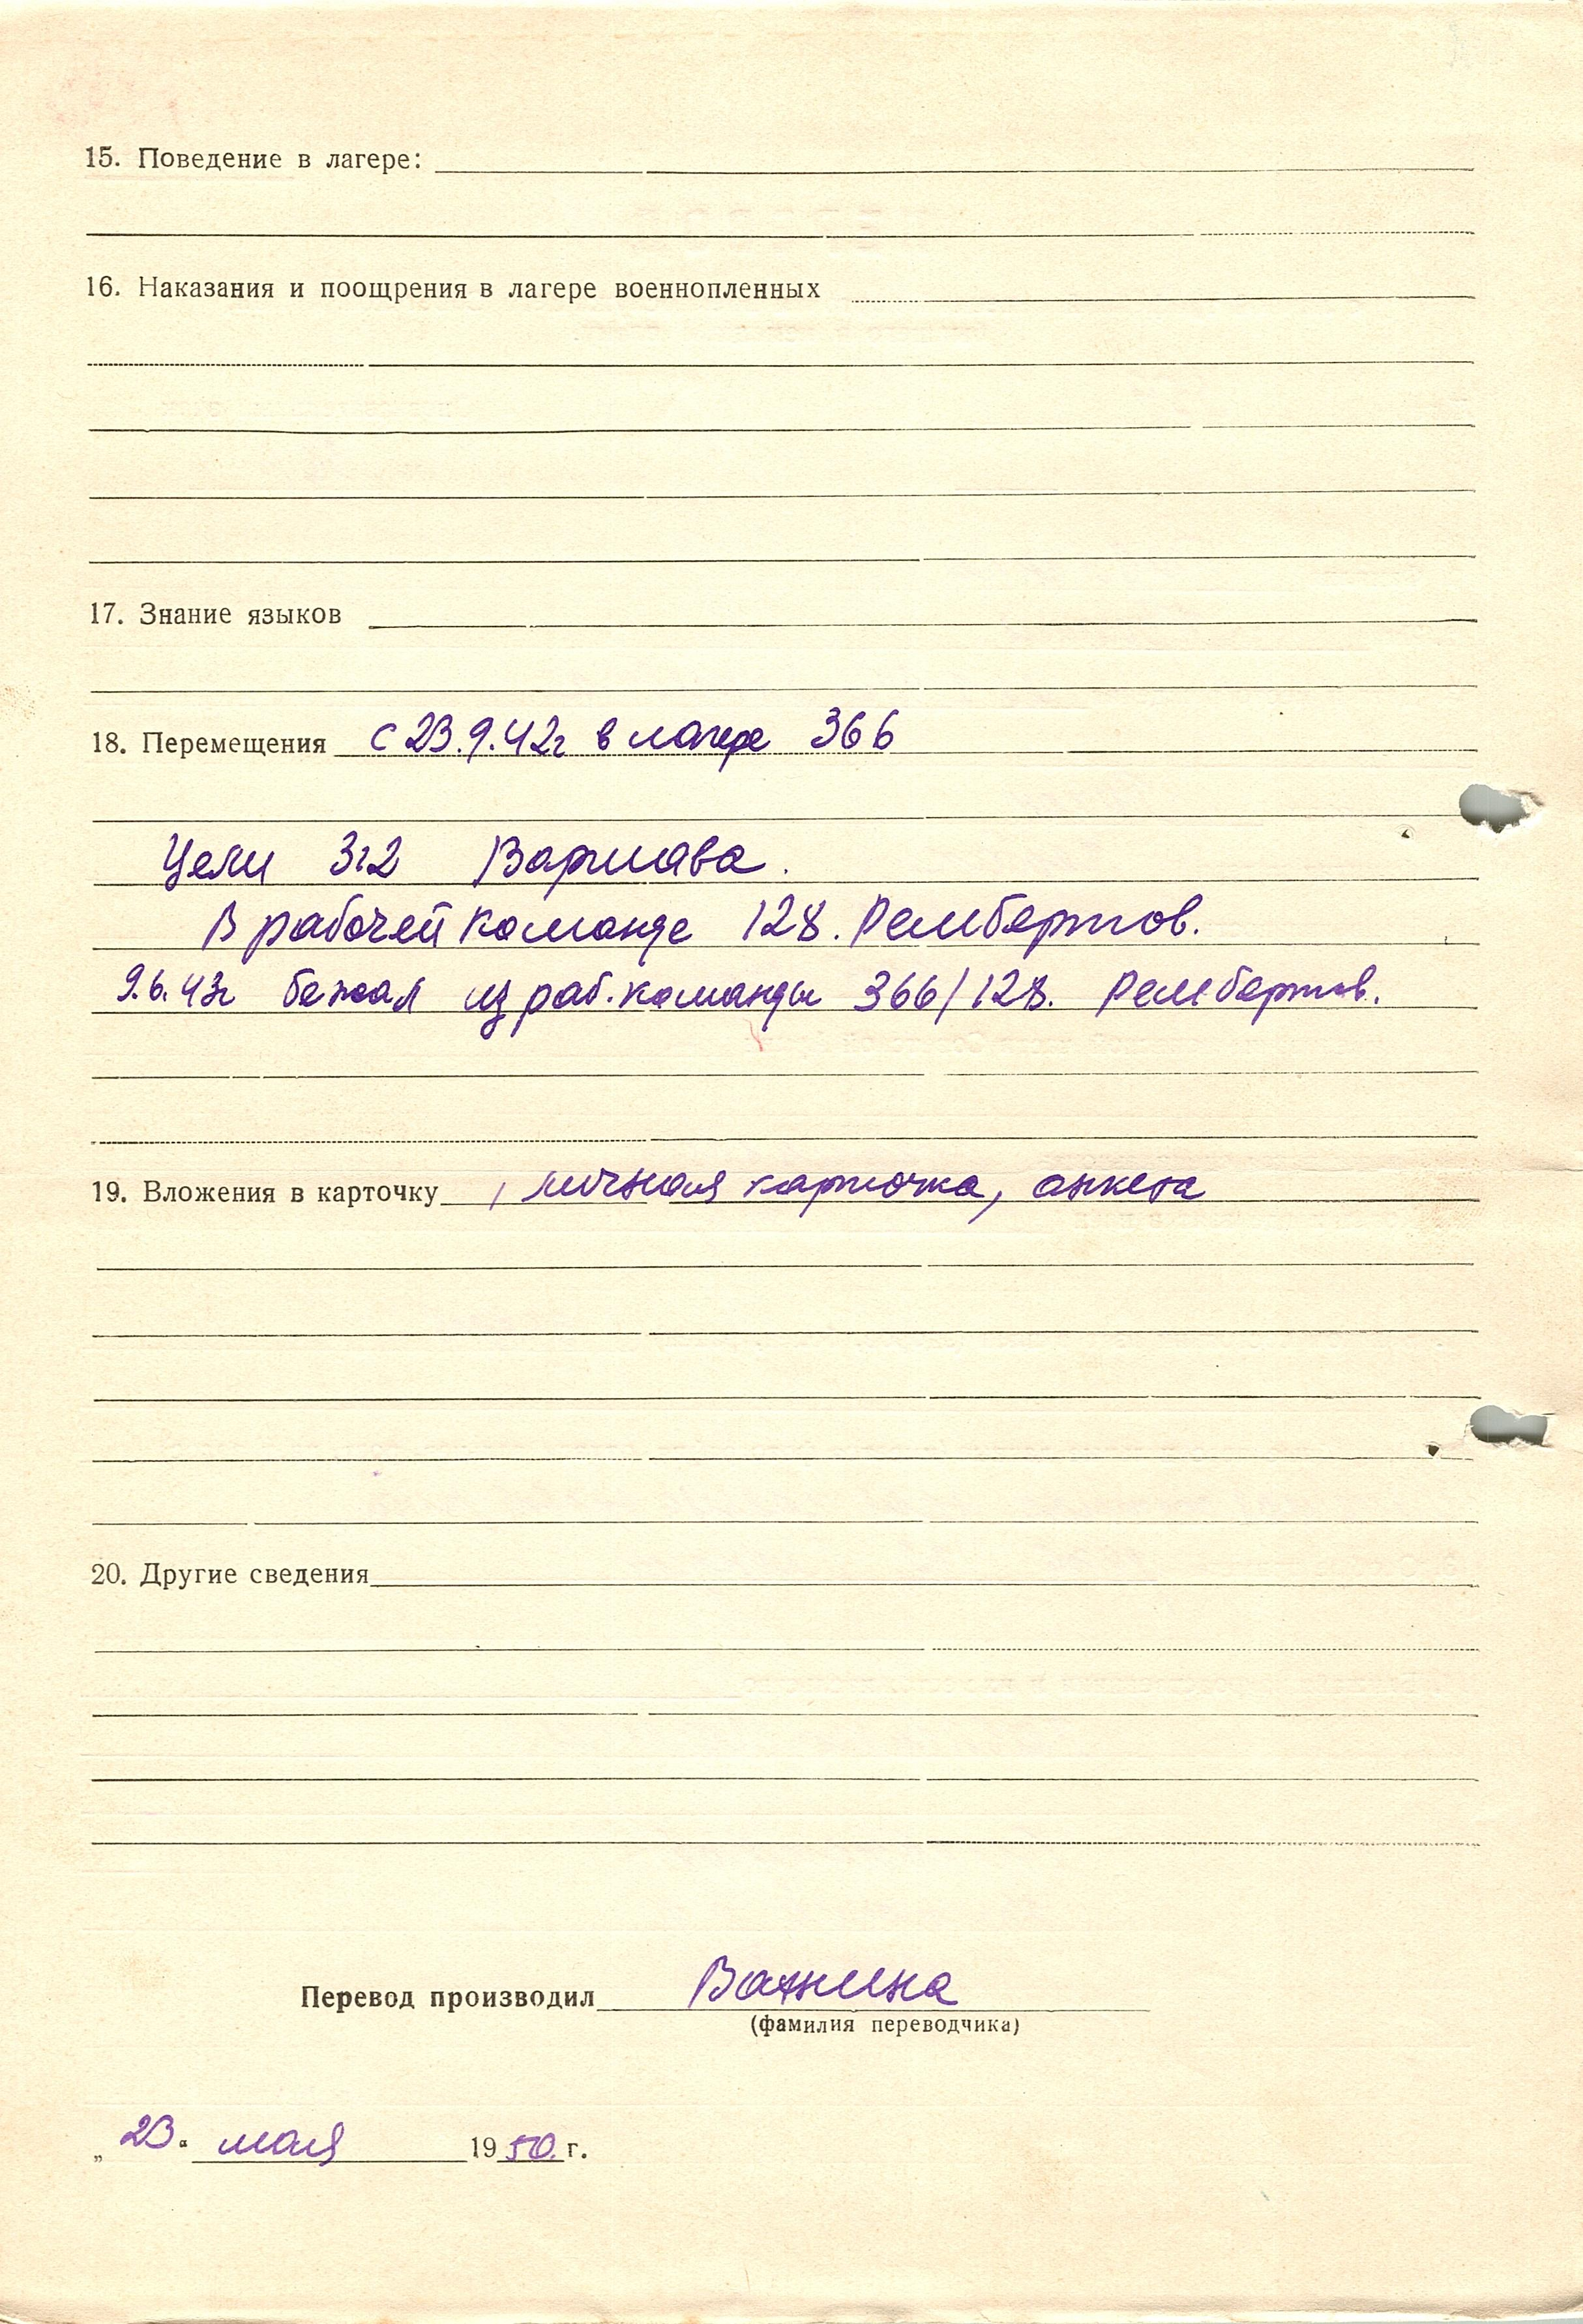 15. Поведение в лагере:
16. Наказания и поощрения в лагере военнопленных
17. Знание языков
18. Перемещения с 23.9.42г в лагере 366
Цели 312 Варшава.
В рабочей команде 128. Рембертов.
9.6.43г бежал из раб. команды 366/128. Рембертов.
19. Вложения в карточку , личная карточка, анкета
20. Другие сведения
Перевод производил Важнина
(фамилия переводчика)
„23" мая 1950 г.